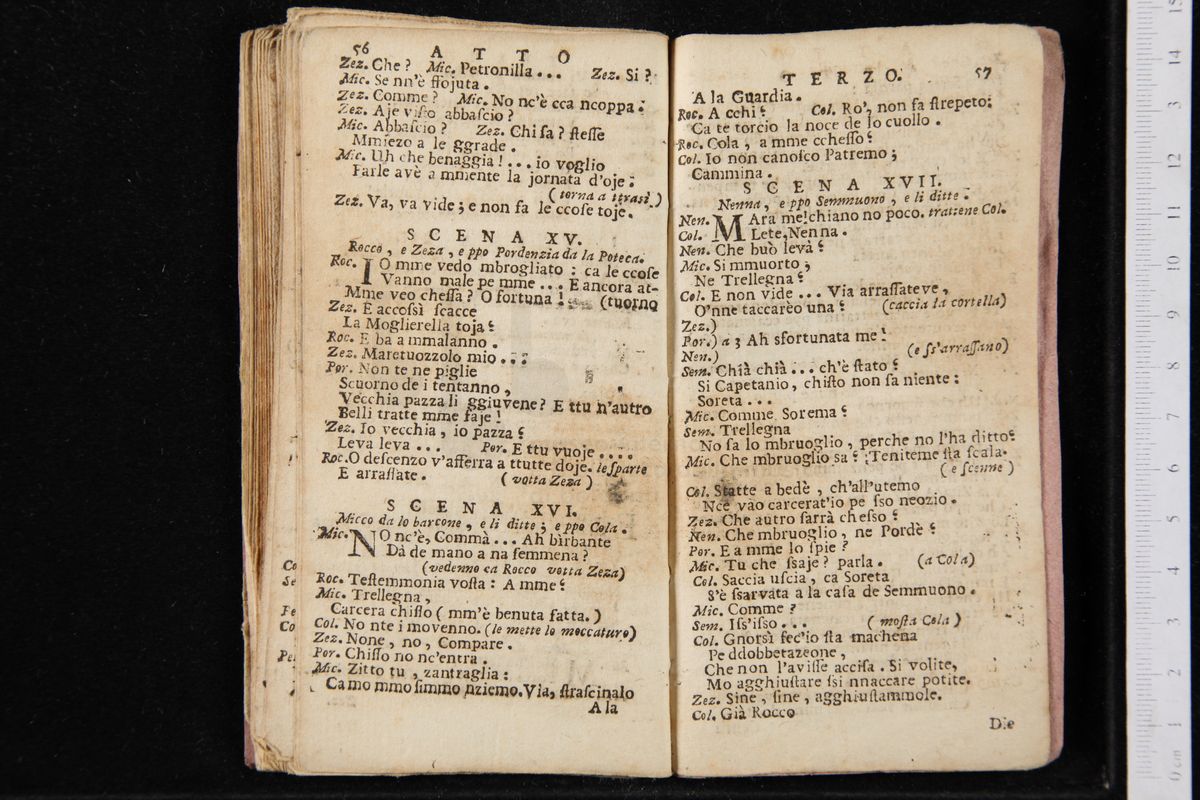 56 ATTO
Zez. Che? Mic. Petronilla... Zez. Si?
Mic. Se nn'è ſſojuta.
Zez. Comme? Mic. No nc'è cca ncoppa.
Zez. Aje viſto abbaſcio?
Mic. Abbaſcio? Zez. Chi ſa? ſteſſe
Mmiezo a le ggrade.
Mic. Uh che benaggia!... io voglio
Farle avè a mmente la jornata d'oje:
(torna a ttrasì)
Zez. Va, va vide; e non fa le ccoſe toje.
SCENA XV.
Rocco, e Zeza, e ppo Pordenzia da la Poteca.
Roc. IO mme vedo mbrogliato: ca le ccoſe
Vanno male pe mme... E ancora at-
Mme veo cheſſa? O fortuna! (tuorno
Zez. E accoſsì ſcacce
La Moglierella toja?
Roc. E ba a mmalanno.
Zez. Maretuozzolo mio...
Por. Non te ne piglie
Scuorno de i tentanno,
Vecchia pazza li ggiuvene? E ttu n'autro
Belli tratte mme faje!
Zez. Io vecchia, io pazza?
Leva leva... Por. E ttu vuoje....
Roc. O deſcenzo v'afferra a ttutte doje. le ſparte
E arraſſate. (votta Zeza)
SCENA XVI.
Micco da lo barcone, e li ditte; e ppo Cola.
Mic. NO nc'è, Commà... Ah birbante
Dà de mano a na femmena?
(vedenno ca Rocco votta Zeza)
Roc. Teſtemmonia voſta: A mme?
Mic. Trellegna,
Carcera chiſto (mm'è benuta fatta.)
Col. No nte i movenno. (le mette lo moccaturo)
Zez. None, no, Compare.
Por. Chiſſo no nc'entra.
Mic. Zitto tu, zantraglia:
Ca mo mmo ſimmo nziemo. Via, ſtraſcinalo
A la
TERZO. 57
A la Guardia.
Roc. A cchi? Col. Ro', non fa ſtrepeto:
Ca te torcio la noce de lo cuollo.
Roc. Cola, a mme ccheſſo?
Col. Io non canoſco Patremo;
Cammina.
SCENA XVII.
Nenna, e ppo Semmuono, e li ditte.
Nen. MAra me! chiano no poco. trattene Col.
Col. Lete, Nenna.
Nen. Che buò levà?
Mic. Si mmuorto;
Ne Trellegna?
Col. E non vide... Via arraſſateve,
O'nne taccarèo una? (caccia la cortella)
Zez.)
Por.) a 3 Ah sfortunata me!
Nen.) (e ſs'arraſſano)
Sem. Chià chià... ch'è ſtato?
Si Capetanio, chiſto non ſa niente:
Soreta...
Mic. Comme Sorema?
Sem. Trellegna
No ſa lo mbruoglio, perche no l'ha ditto?
Mic. Che mbruoglio sa? Teniteme ſta ſcala.
(e ſcenne)
Col. Statte a bedè, ch'all'utemo
Nce vao carcerat'io pe ſſo neozio.
Zez. Che autro ſarrà cheſſo?
Nen. Che mbruoglio, ne Pordè?
Por. E a mme lo ſpie?
Mic. Tu che ſsaje? parla. (a Cola)
Col. Saccia uſcia, ca Soreta
S'è ſsarvata a la caſa de Semmuono.
Mic. Comme?
Sem. Iſs'iſſo... (moſta Cola)
Col. Gnorsì fec'io ſta machena
Pe ddobbetazeone,
Che non l'aviſſe acciſa. Si volite,
Mo agghiuſtare ſsi nnaccare potite.
Zez. Sine, ſine, agghiuſtammole.
Col. Già Rocco
Die